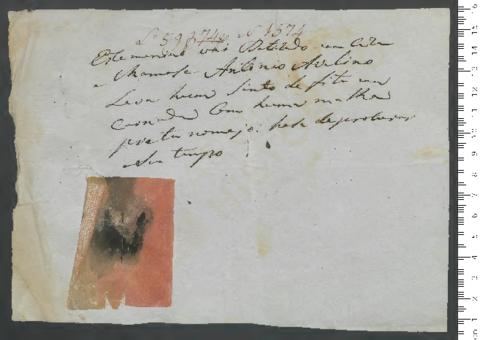 L 59 f 74v Nº 1574
Este menino vai Batizado em Caza
e Chamase Antonio Avelino
Leva hum Sinto de fita en
carnada Com huma malha
preta no mejo: hade procurar
Seu tempo